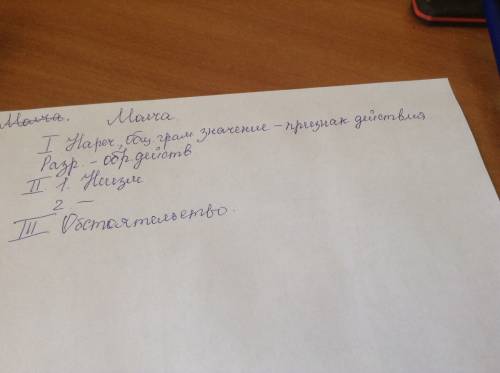 Молча. Молча
I Нареч, общ. грам. значение - признак действия
Разр. - обр. действ
II 1. Неизм
2 -
III Обстоятельство.